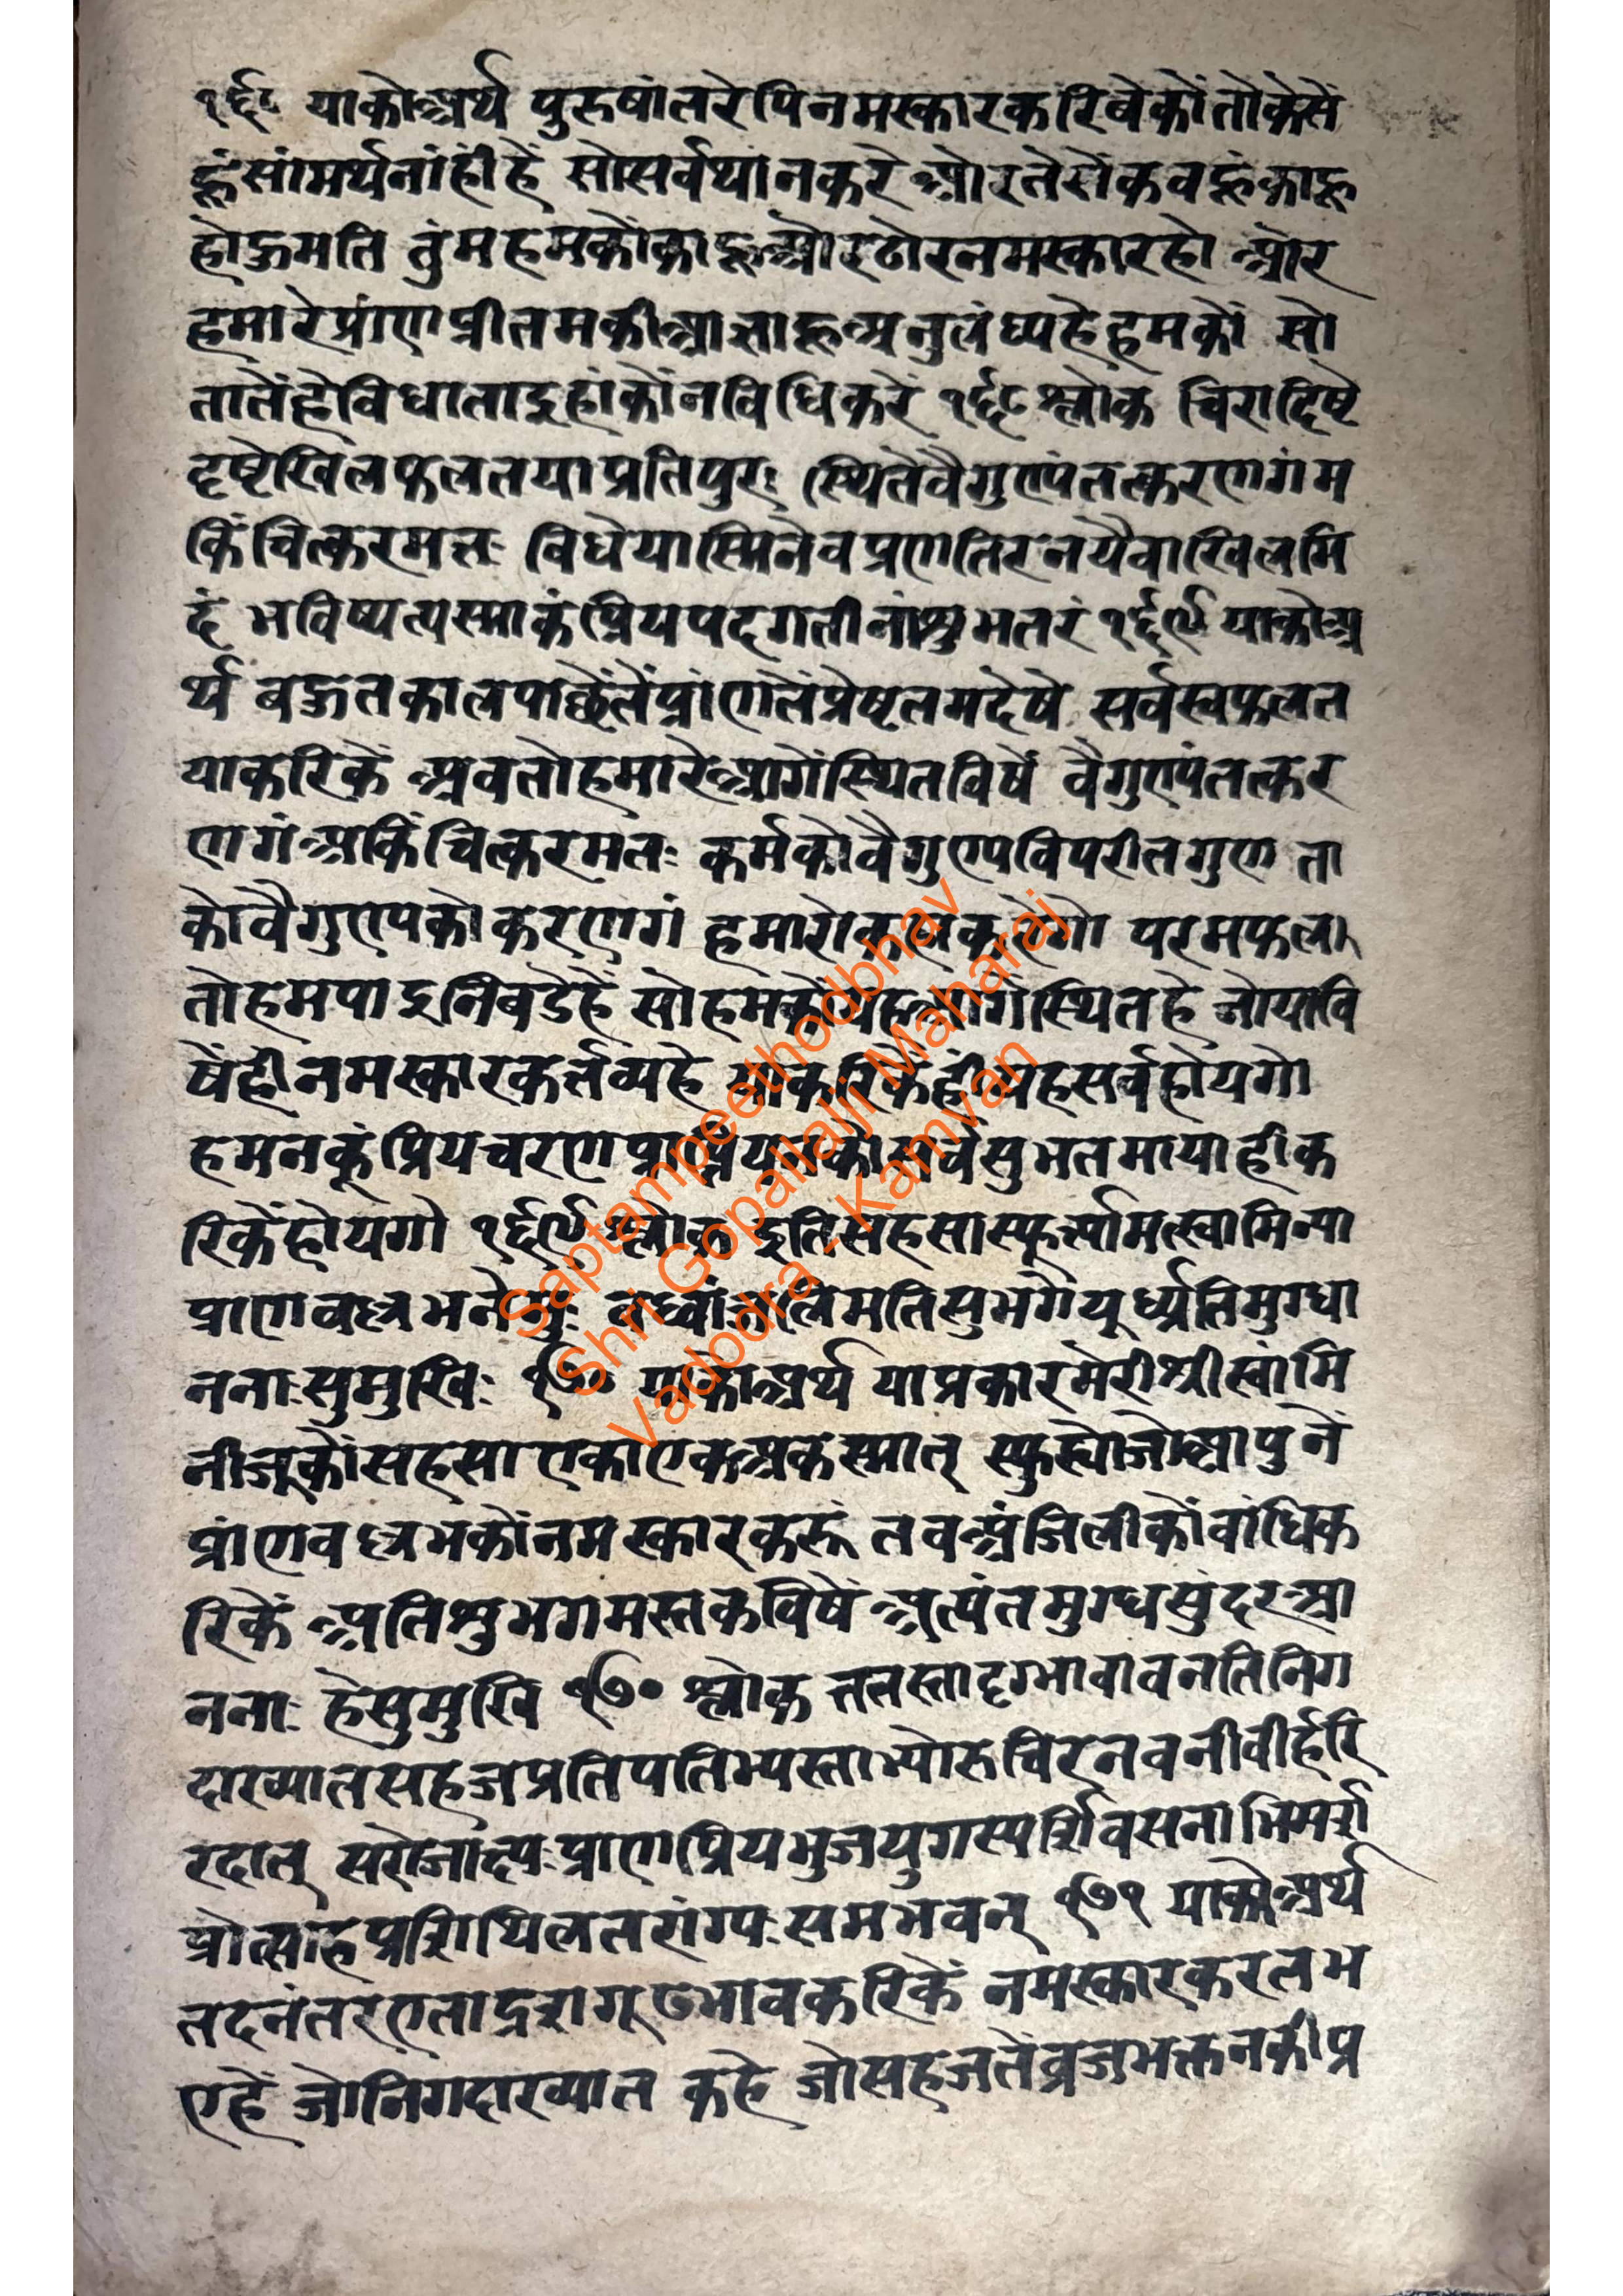 १६८ याकोअर्थ पुरुषांतरेपिनमस्कारकरिवेकोंतोकेसें
हूंसांमर्थनांहींहें सोसर्वथांनकरे ओरतेसेंकवहूंकाहू
होऊमति तुंमहमकोंकाहूओरठोरनमस्कारहो ओर
हमारेप्रांणप्रीतमकीआज्ञाहूअनुलंघ्यहेहमकों सो
तातेंहेविधाताइहांकोंनविधिकरें १६८ श्लोक चिरादिष्टे
दृष्टेखिलफलतयाप्रतिपुरः स्थितेवैगुण्यंतत्करणगंम
किंचित्करमतः विधेयास्मिनेवप्रणतिरनयैवाखिलमि
दं भविष्यत्यस्माकंप्रियपदगतीनांशुभतरं १६९ याकोअ
र्थ बऊतकालपाछेंतेंप्रांणतेंप्रेष्टतमदेषे सर्वस्वफलत
याकरिकें अवतोहमारेआगेंस्थितविषें वैगुण्यंतत्कर
णगंअकिंचित्करमतः कर्मकोवैगुण्यविपरीतगुण ता
कोवैगुण्यकोकरणगं हमारोकहाकरेगो परमफल
तोहमपाइनिबडेहें सोहमकोंयहआगेंस्थितहे जोयावि
षेंहीनमस्कारकर्तव्यहे याकरिकेंहींयहसर्वहोयगो
हमनकूंप्रियचरणप्राप्तियनकोसर्वसुभतमायाहीक
रिकेंहोयगो १६९ श्लोक इतिसहसास्फूर्त्यामत्स्वामिन्या
प्राणवल्लभनेमुः बध्वांजलिमतिसुभगेमूर्ध्यतिमुग्धा
ननाःसुमुखिः १७० याकोअर्थ याप्रकारमेरीश्रीस्वांमि
नीजूकोंसहसाएकाएकअकस्मात् स्फुर्योजोआपुनें
प्रांणवल्लभकोंनमस्कारकरूं तवअंजिलीकोंवांधिक
रिकें अतिशुभगमस्तकविषें अत्यंतमुग्धसुंदरआ
ननाः हेसुमुखि १७० श्लोक ततस्तादृग्भावावनतिनिग
दाख्यातसहजप्रतिपतिभ्यस्ताभ्योरुचिरनवनीवीर्हरि
रदात् सरोजाक्ष्यःप्राणप्रियभुजयुगस्पर्शिवसनाभिमर्श
प्रोत्साहप्रशिथिलतरांग्यःसमभवन् १७१ याकोअर्थ
तदनंतरएताद्रशगूढभावकरिकें नमस्कारकरतभ
एहें जोनिगदाख्यात कहे जोसहजतेंव्रजभक्तनकीप्र
Saptampeethodbhav
Shri Gopallalji Maharaj
Vadodra - Kamvan